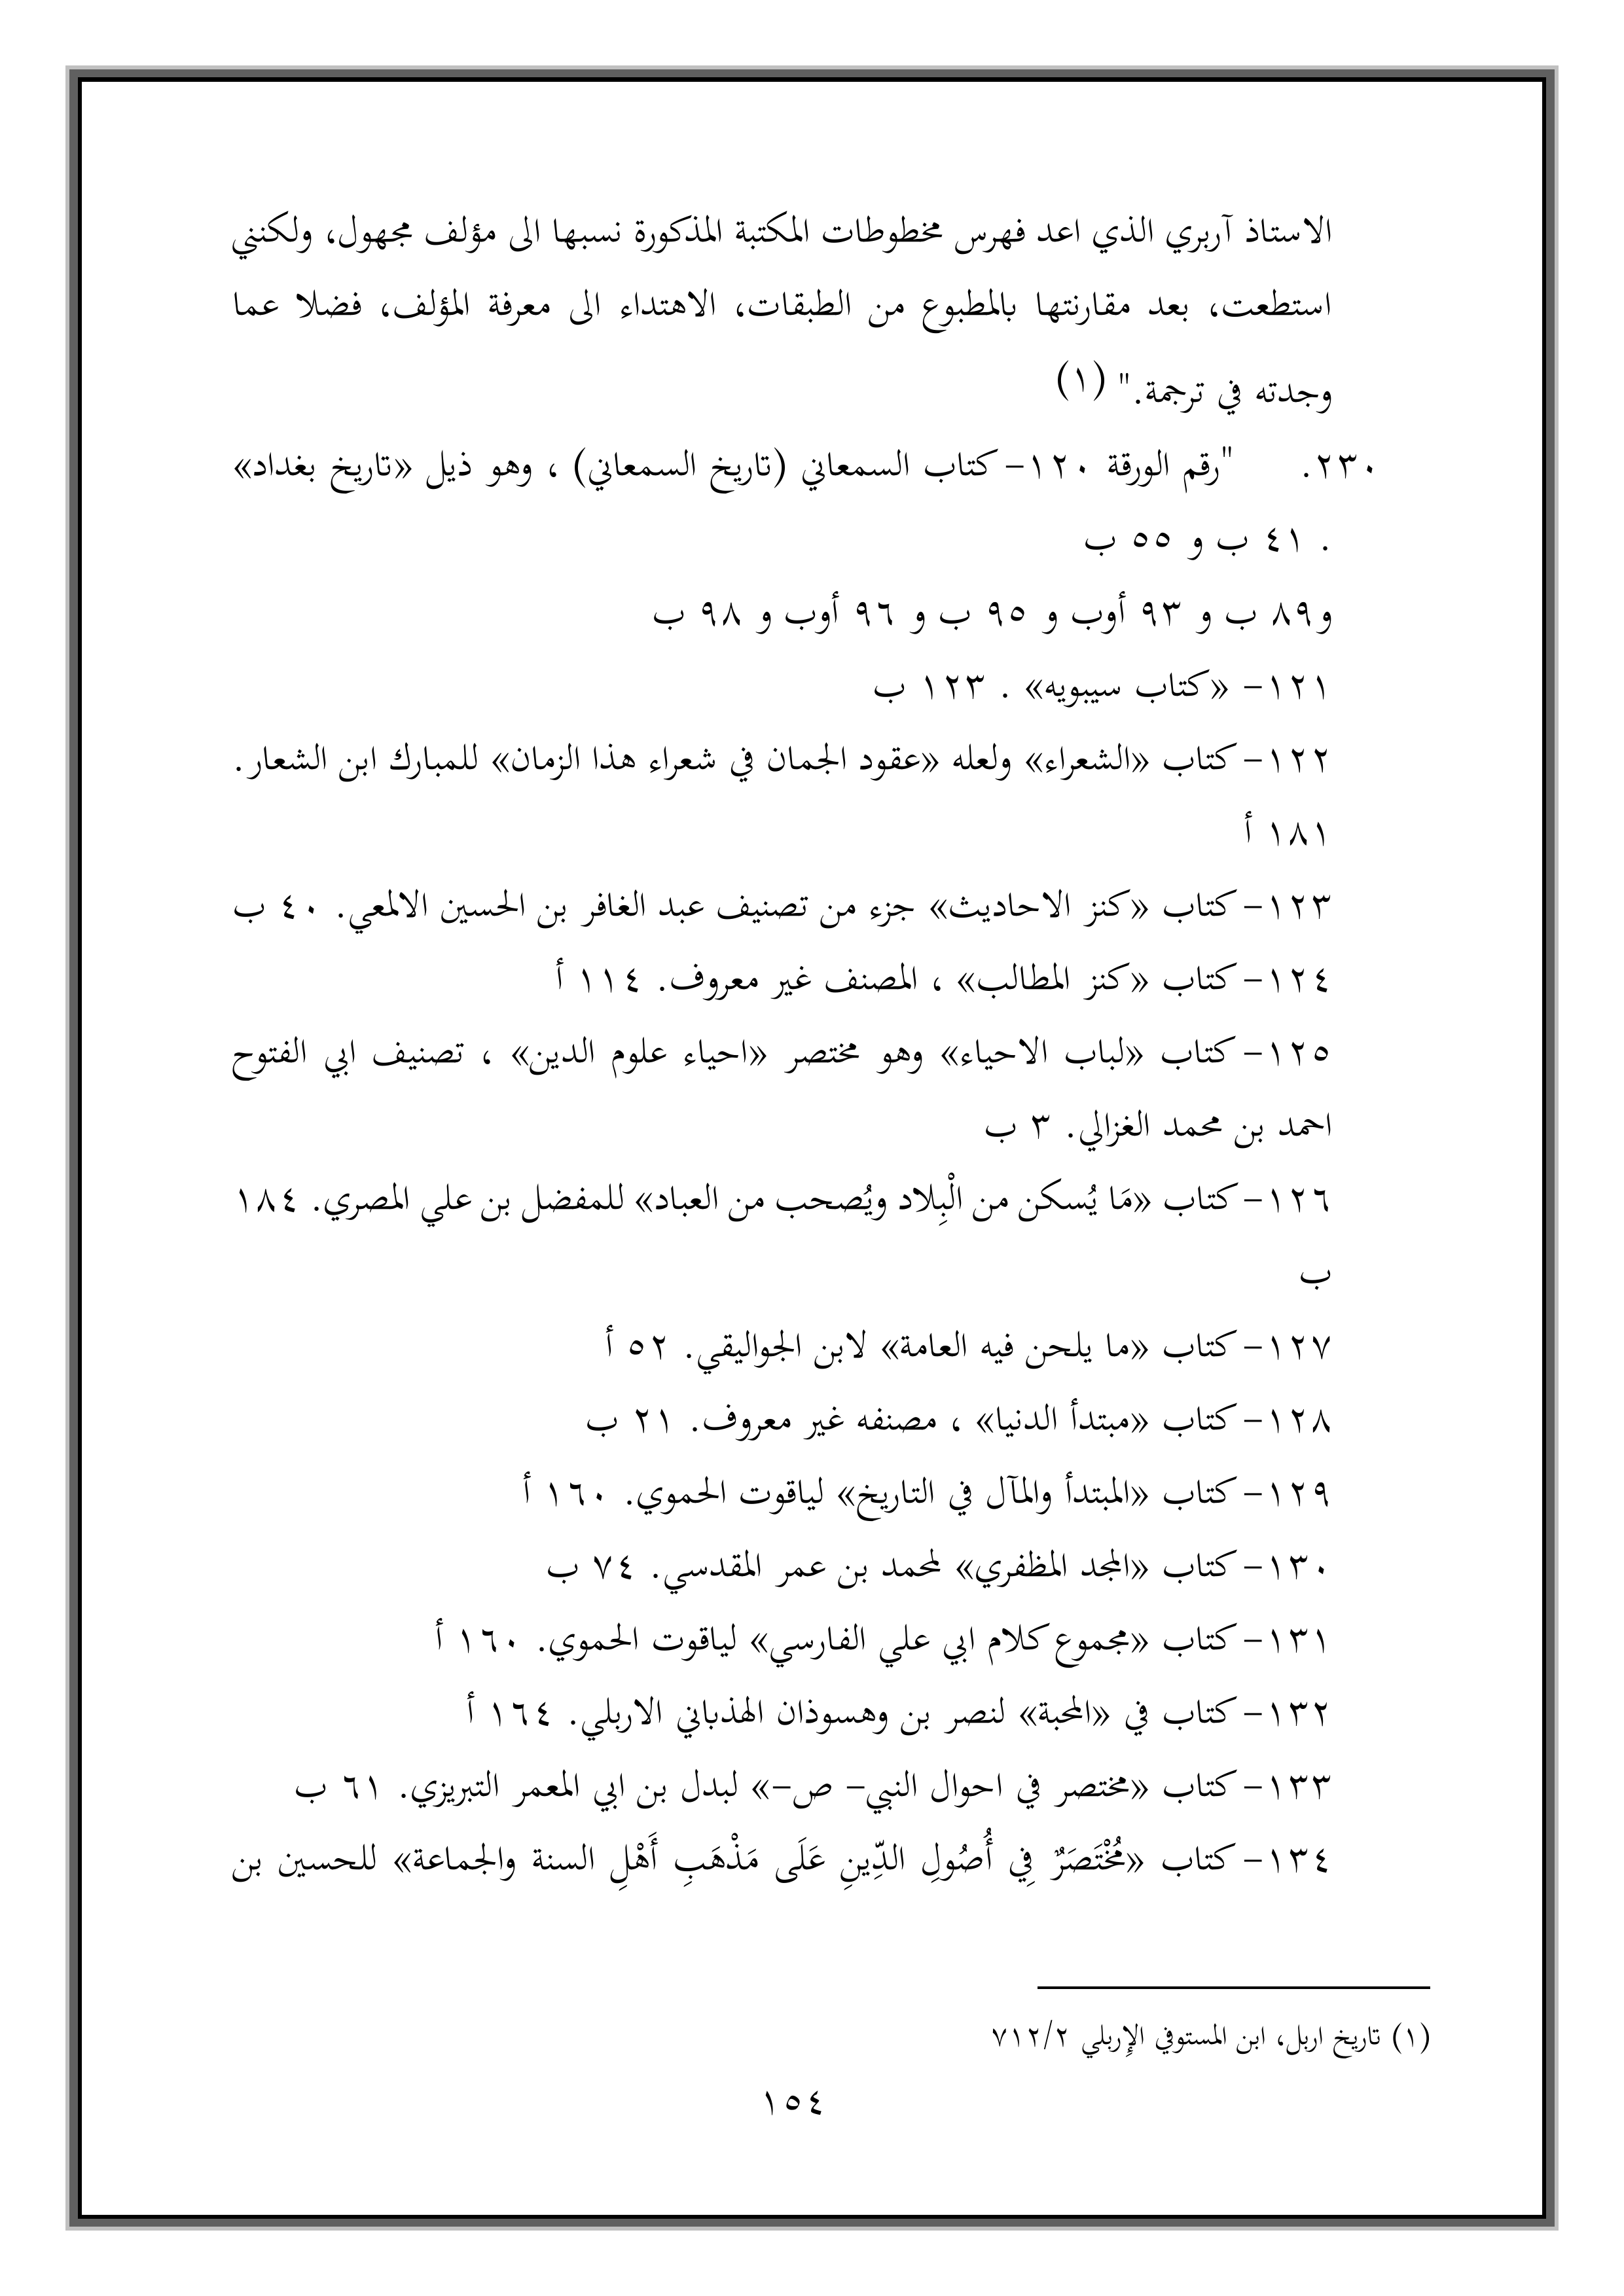 الاستاذ آربري الذي اعد فهرس مخطوطات المكتبة المذكورة نسبها الى مؤلف مجهول، ولكنني
استطعت، بعد مقارنتها بالمطبوع من الطبقات، الاهتداء الى معرفة المؤلف، فضلا عما
وجدته في ترجمة." (١)
٢٣٠. "رقم الورقة ١٢٠- كتاب السمعاني (تاريخ السمعاني) ، وهو ذيل «تاريخ بغداد»
. ٤١ ب و ٥٥ ب
و٨٩ ب و ٩٣ أوب و ٩٥ ب و ٩٦ أوب و ٩٨ ب
١٢١- «كتاب سيبويه» . ١٢٣ ب
١٢٢- كتاب «الشعراء» ولعله «عقود الجمان في شعراء هذا الزمان» للمبارك ابن الشعار.
١٨١ أ
١٢٣- كتاب «كنز الاحاديث» جزء من تصنيف عبد الغافر بن الحسين الالمعي. ٤٠ ب
١٢٤- كتاب «كنز المطالب» ، المصنف غير معروف. ١١٤ أ
١٢٥- كتاب «لباب الاحياء» وهو مختصر «احياء علوم الدين» ، تصنيف ابي الفتوح
احمد بن محمد الغزالي. ٣ ب
١٢٦- كتاب «مَا يُسكن من الْبِلاد ويُصحب من العباد» للمفضل بن علي المصري. ١٨٤
ب
١٢٧- كتاب «ما يلحن فيه العامة» لابن الجواليقي. ٥٢ أ
١٢٨- كتاب «مبتدأ الدنيا» ، مصنفه غير معروف. ٢١ ب
١٢٩- كتاب «المبتدأ والمآل في التاريخ» لياقوت الحموي. ١٦٠ أ
١٣٠- كتاب «المجد المظفري» لمحمد بن عمر المقدسي. ٧٤ ب
١٣١- كتاب «مجموع كلام ابي علي الفارسي» لياقوت الحموي. ١٦٠ أ
١٣٢- كتاب في «المحبة» لنصر بن وهسوذان الهذباني الاربلي. ١٦٤ أ
١٣٣- كتاب «مختصر في احوال النبي- ص-» لبدل بن ابي المعمر التبريزي. ٦١ ب
١٣٤- كتاب «مُخْتَصَرٌ فِي أُصُولِ الدِّينِ عَلَى مَذْهَبِ أَهْلِ السنة والجماعة» للحسين بن
(١) تاريخ اربل، ابن المستوفي الإِربلي ٧١٢/٢
١٥٤